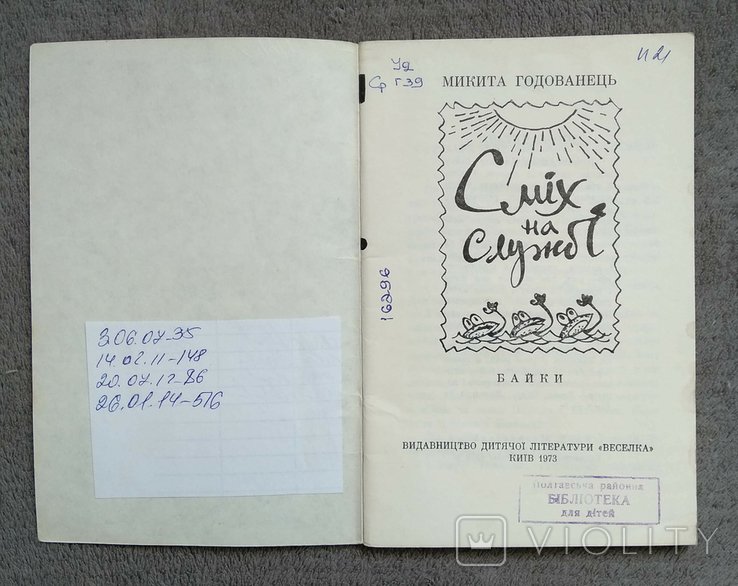 306.07-35
14.02.11-148
20.07.12-86
26.01.14-516
Уд
Ср Г39
И21
МИКИТА ГОДОВАНЕЦЬ
Сміх
на
службі
16296
БАЙКИ
ВИДАВНИЦТВО ДИТЯЧОЇ ЛІТЕРАТУРИ «ВЕСЕЛКА»
КИЇВ 1973
Полтавська районна
БІБЛІОТЕКА
для дітей
VIOLITY